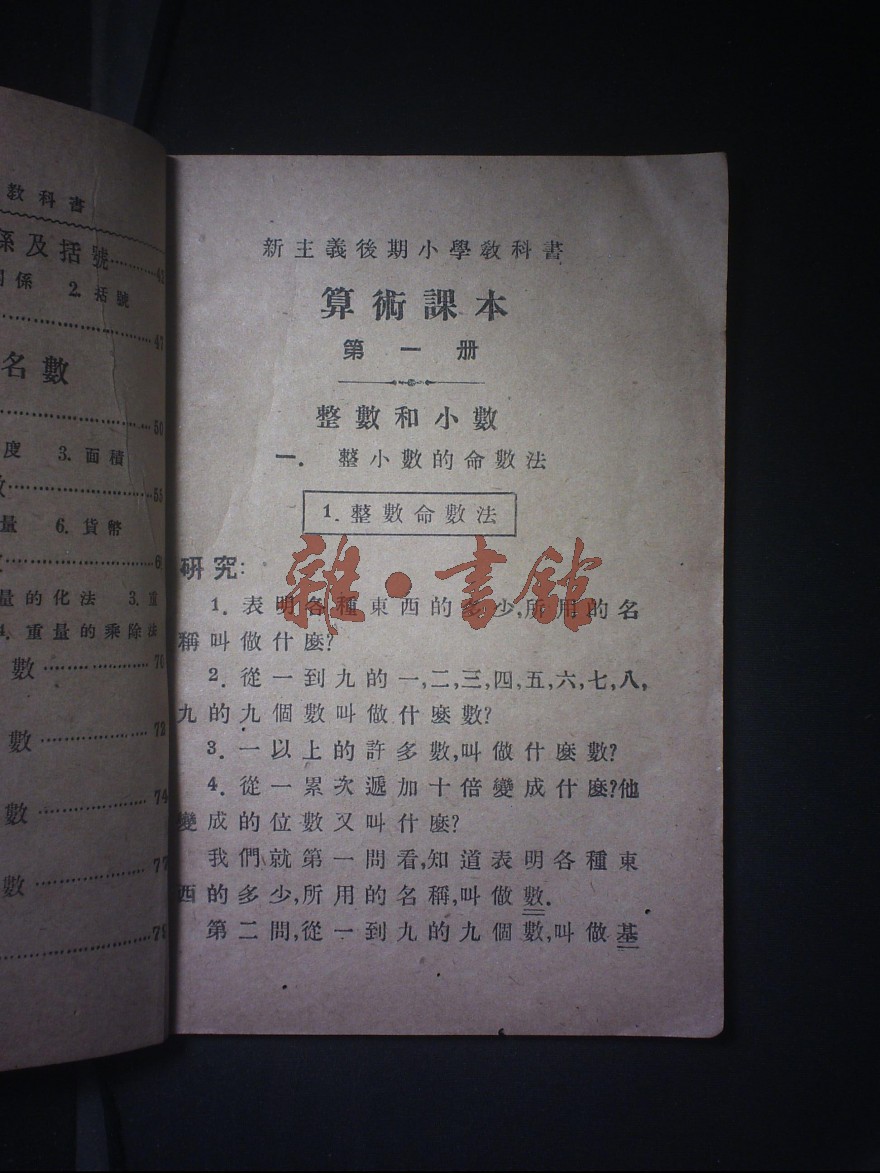 教科書
係及括號……41
關係 2. 括號
……47
名數
……50
度 3. 面積
……55
量 6. 貨幣
量的化法 3. 重
4. 重量的乘除法
數……70
數……72
數……74
數……77
……78
新主義後期小學教科書
算術課本
第一册
整數和小數
一. 整小數的命數法
1. 整數命數法
研究:
雜·書館
1. 表明各種東西的多少,所用的名
稱叫做什麼?
2. 從一到九的一,二,三,四,五,六,七,八,
九的九個數叫做什麼數?
3. 一以上的許多數,叫做什麼數?
4. 從一累次遞加十倍變成什麼?他
變成的位數又叫什麼?
我們就第一問看,知道表明各種東
西的多少,所用的名稱,叫做數.
第二問,從一到九的九個數,叫做基